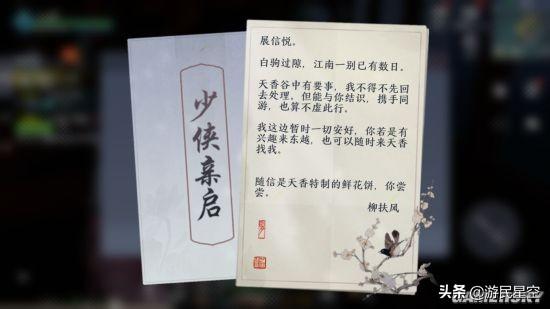 少侠亲启
展信悦。
白驹过隙，江南一别已有数日。
天香谷中有要事，我不得不先回
去处理，但能与你结识，携手同
游，也算不虚此行。
我这边暂时一切安好，你若是有
兴趣来东越，也可以随时来天香
找我。
随信是天香特制的鲜花饼，你尝
尝。
柳扶风
头条 @游民星空
GAMERSKY